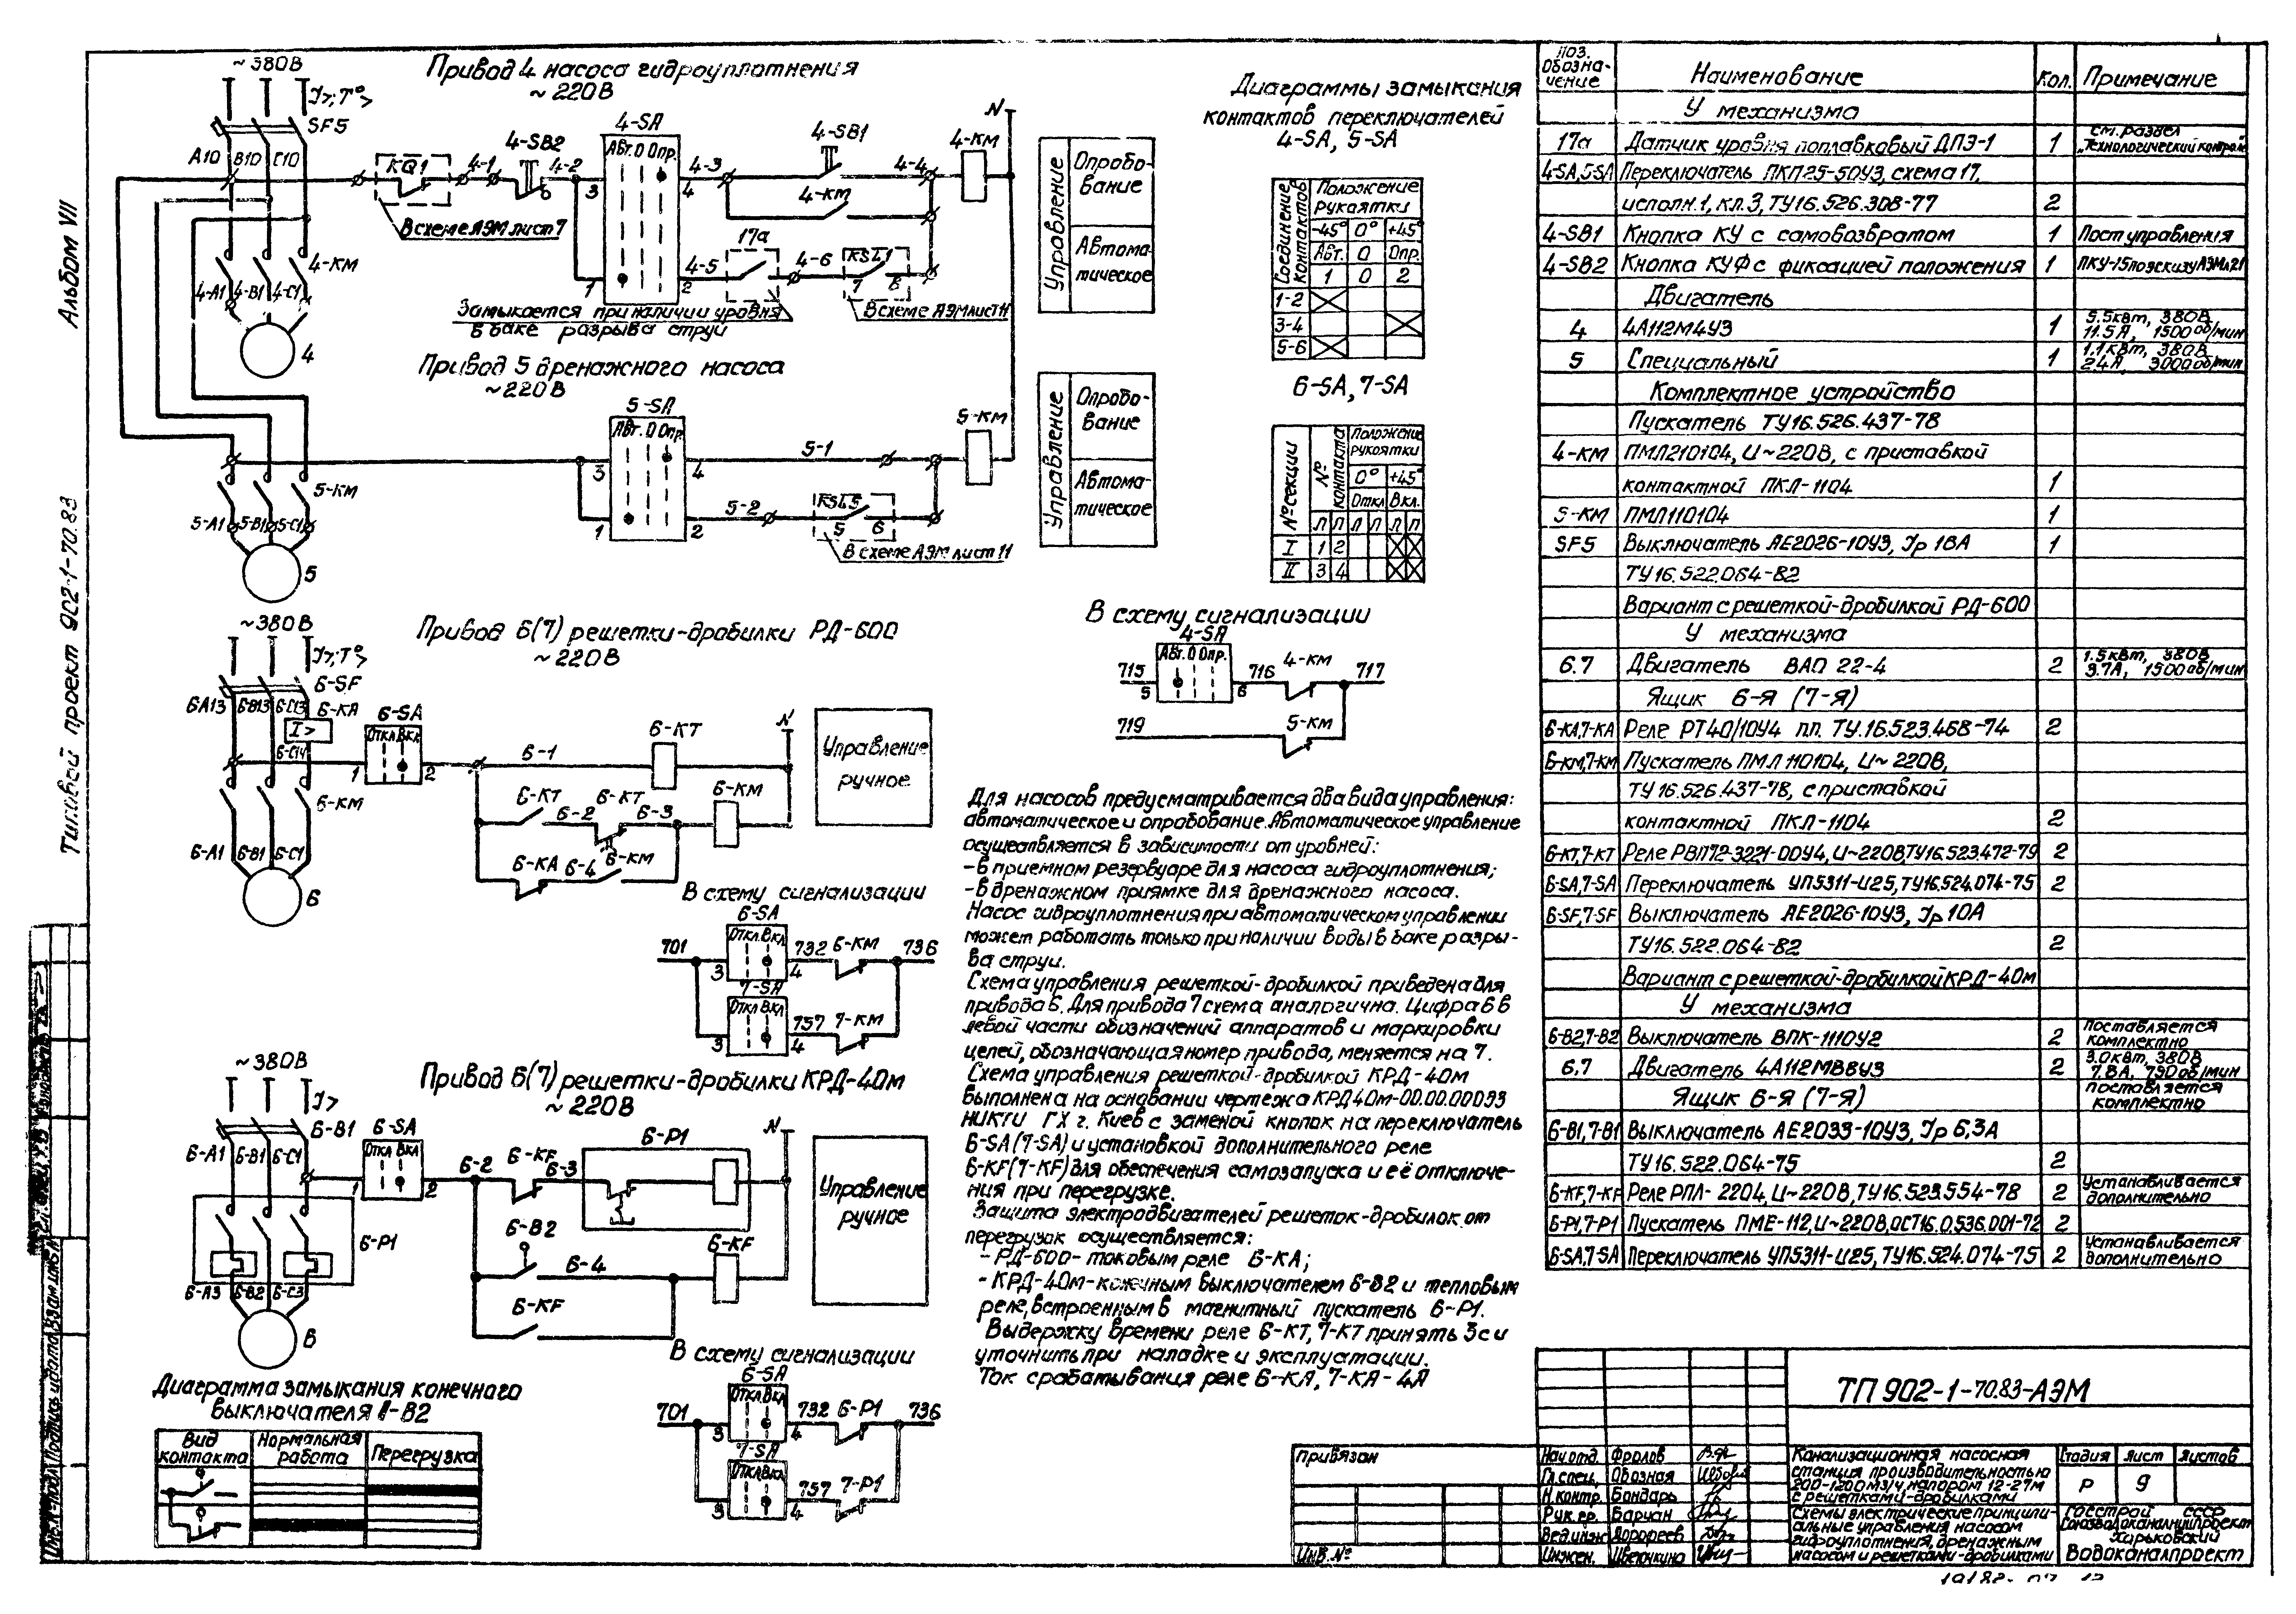 Альбом VII
Типовой проект 902-1-70.83
~380В
Привод 4 насоса гидроуплотнения
~220В
SF5
А10 В10 С10
KQ1
4-1
4-SB2
4-2
4-SA
Авт. О Опр.
3
4
1
2
4-3
4-SB1
4-КМ
4-4
4-КМ
N
В схеме АЭМ лист 7
17а
4-5
4-6
KSL1
7
8
Замыкается при наличии уровня
в баке разрыва струи
В схеме АЭМ лист 11
4-КМ
4-А1 4-В1 4-С1
4
Управление
Опробо-
вание
Автома-
тическое
Привод 5 дренажного насоса
~220В
5-SA
Авт. О Опр.
3
4
1
2
5-1
5-КМ
5-2
KSL5
5
6
В схеме АЭМ лист 11
5-КМ
5-А1 5-В1 5-С1
5
Управление
Опробо-
вание
Автома-
тическое
~380В
Привод 6(7) решетки-дробилки РД-600
~220В
6-SF
6А13 6-В13 6-С13
6-КА
I>
6-С14
6-SA
Откл Вкл
1
2
6-1
6-КТ
N
6-КТ
6-2
6-КТ
6-3
6-КМ
6-КА
6-4
6-КМ
6-КМ
6-А1 6-В1 6-С1
6
Управление
ручное
В схему сигнализации
6-SA
Откл. Вкл
701
3
4
732
6-КМ
736
7-SA
Откл Вкл
3
4
757
7-КМ
~380В
Привод 6(7) решетки-дробилки КРД-40м
~220В
6-В1
6-А1 6-В1 6-С1
6-SA
Откл Вкл
1
2
6-2
6-KF
6-3
6-Р1
N
6-В2
6-4
6-KF
6-KF
6-Р1
6-А3 6-В2 6-С3
Управление
ручное
В схему сигнализации
6-SA
Откл Вкл
701
3
4
732
6-Р1
736
7-SA
Откл Вкл
3
4
757
7-Р1
Диаграмма замыкания конечного
Вид
контакта
Нормальная
работа
Перегрузка
Диаграммы замыкания
контактов переключателей
4-SA, 5-SA
Соединение
контактов
Положение
рукоятки
-45° 0° +45°
Авт. О Опр.
1 0 2
1-2
3-4
5-6
6-SA, 7-SA
№ секции
№
контакта
Положение
рукоятки
0° +45°
Откл Вкл.
Л П Л П Л П
I 1 2
II 3 4
В схему сигнализации
4-SA
Авт. О Опр.
715
5
6
716
4-КМ
717
719
5-КМ
Для насосов предусматривается два вида управления:
автоматическое и опробование. Автоматическое управление
осуществляется в зависимости от уровней:
-в приемном резервуаре для насоса гидроуплотнения;
-в дренажном приямке для дренажного насоса.
Насос гидроуплотнения при автоматическом управлении
может работать только при наличии воды в баке разры-
ва струи.
Схема управления решеткой-дробилкой приведена для
привода 6. Для привода 7 схема аналогична. Цифра 6 в
левой части обозначений аппаратов и маркировки
цепей, обозначающая номер привода, меняется на 7.
Схема управления решеткой-дробилкой КРД-40м
выполнена на основании чертежа КРД40м-00.00.000ЭЗ
НИКТИ ГХ г. Киев с заменой кнопок на переключатель
6-SA (7-SA) и установкой дополнительного реле
6-KF(7-KF) для обеспечения самозапуска и её отключе-
ния при перегрузке.
Защита электродвигателей решеток-дробилок от
перегрузок осуществляется:
- РД-600- токовым реле 6-КА;
- КРД-40м-конечным выключателем 6-В2 и тепловым
реле, встроенным в магнитный пускатель 6-Р1.
Выдержку времени реле 6-КТ, 7-КТ принять 3с и
уточнить при наладке и эксплуатации.
Ток срабатывания реле 6-КА, 7-КА-4А
Поз.
обозна-
чение
Наименование
Кол.
Примечание
У механизма
17а Датчик уровня поплавковый ДПЭ-1 1 см. раздел
„Технологический контроль
4-SA,5-SA Переключатель ПКП25-50У3, схема 17,
исполн.1, кл.3, ТУ16.526.308-77 2
4-SB1 Кнопка КУ с самовозвратом 1 Пост управления
4-SB2 Кнопка КУФ с фиксацией положения 1 ПКУ-15 по эскизу АЭМ.л21
Двигатель
4 4А112М4У3 1 5.5кВт, 380В
11.5А, 1500 об/мин
5 Специальный 1 1.1кВт, 380В
24А, 3000 об/мин
Комплектное устройство
Пускатель ТУ16.526.437-78
4-КМ ПМЛ210104, U~220В, с приставкой
контактной ПКЛ-1104 1
5-КМ ПМЛ110104 1
SF5 Выключатель АЕ2026-10У3, Iр 16А 1
ТУ16.522.064-82
Вариант с решеткой-дробилкой РД-600
У механизма
6.7 Двигатель ВАО 22-4 2 1.5кВт, 380В
3.7А, 1500 об/мин
Ящик 6-Я (7-Я)
6-КА,7-КА Реле РТ40/10У4 пп. ТУ.16.523.468-74 2
6-КМ,7-КМ Пускатель ПМЛ 110104, U~220В,
ТУ16.526.437-78, с приставкой
контактной ПКЛ-1104 2
6-КТ,7-КТ Реле РВП72-3221-00У4, U~220В, ТУ16.523.472-79 2
6-SA,7-SA Переключатель УП5311-U25, ТУ16.524.074-75 2
6-SF,7-SF Выключатель АЕ2026-10У3, Iр 10А
ТУ16.522.064-82 2
Вариант с решеткой-дробилкой КРД-40м
У механизма
6-В2,7-В2 Выключатель ВПК-1110У2 2 поставляется
комплектно
6,7 Двигатель 4А112МВ8У3 2 3.0кВт, 380В
7.8А, 750 об/мин
поставляется
комплектно
Ящик 6-Я (7-Я)
6-В1,7-В1 Выключатель АЕ2033-10У3, Iр 6,3А
ТУ16.522.064-75 2
6-KF,7-KF Реле РПЛ-2204, U~220В, ТУ16.523.554-78 2 Устанавливается
дополнительно
6-Р1,7-Р1 Пускатель ПМЕ-112, U~220В, ОСТ16.0.536.001-72 2
6-SA,7-SA Переключатель УП5311-U25, ТУ16.524.074-75 2 Устанавливается
дополнительно
ТП 902-1-70.83-АЭМ
Привязан
Инв. №
Нач.отд. Фролов
Гл.спец. Обозная
Н.контр. Бондарь
Рук.гр. Барчан
Вед.инж Дорофеев
Инжен.
Канализационная насосная
станция производительностью
200-1200м3/ч, напором 12-27м
с решетками-дробилками
Стадия Лист Листов
Р 9
Схемы электрические принципи-
альные управления насосом
гидроуплотнения, дренажным
насосом и решетками-дробилками
Госстрой СССР
Союзводоканалниипроект
Харьковский
Водоканалпроект